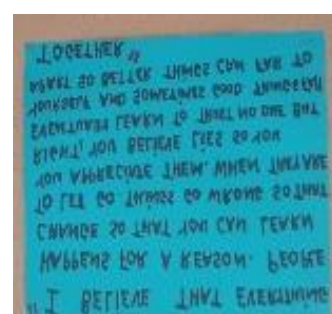 "I BELIEVE THAT EVERYTHING
HAPPENS FOR A REASON. PEOPLE
CHANGE SO THAT YOU CAN LEARN
TO LET GO. THINGS GO WRONG SO THAT
YOU APPRECIATE THEM. WHEN THEY ARE
RIGHT, YOU BELIEVE LIES SO YOU
EVENTUALLY LEARN TO TRUST NO ONE BUT
YOURSELF AND SOMETIMES GOOD THINGS FALL
APART SO BETTER THINGS CAN FALL TO
TOGETHER"